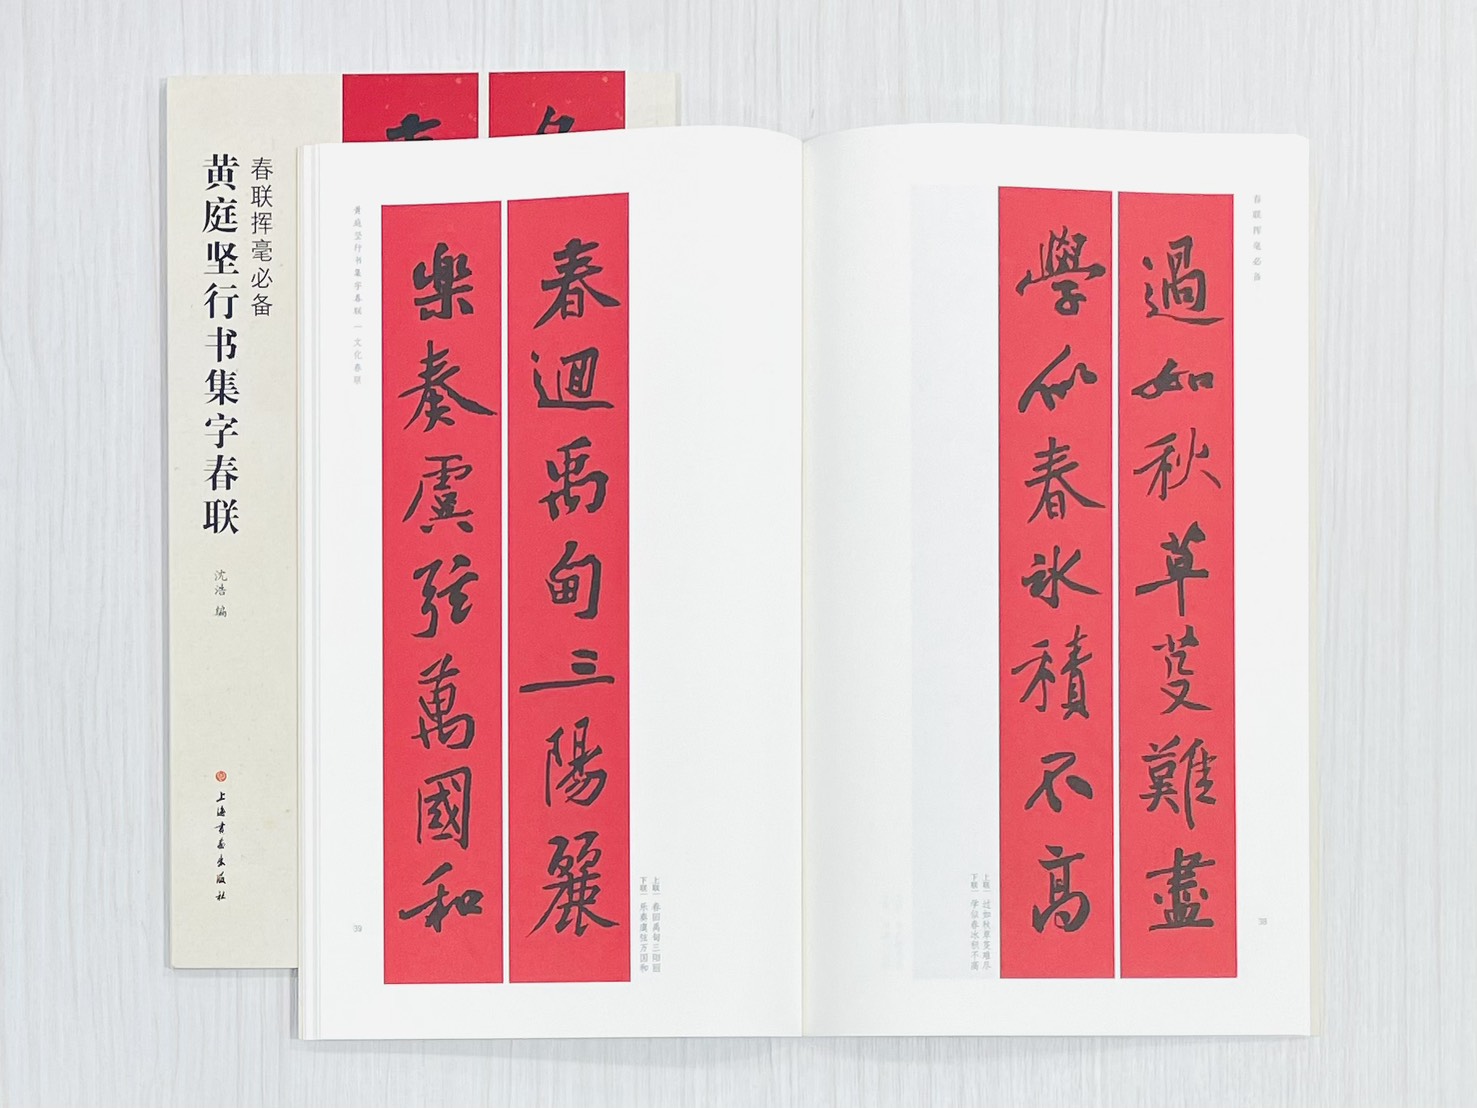 春联挥毫必备
黄庭坚行书集字春联
沈浩 编
上海书画出版社
春联挥毫必备
過如秋草芟難盡
學似春冰積不高
上联|过如秋草芟难尽
下联|学似春冰积不高
38
春迴禹甸三陽麗
樂奏虞弦萬國和
上联|春回禹甸三阳丽
下联|乐奏虞弦万国和
黄庭坚行书集字春联|文化春联
39